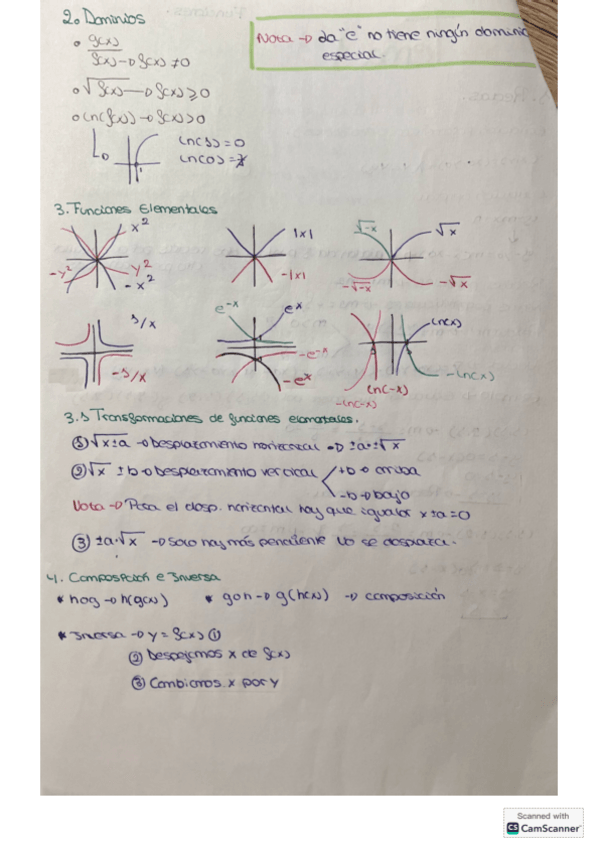 2. Dominios
• g(x)/f(x) → f(x) ≠ 0
Nota → La "e" no tiene ningún dominio
especial.
• √f(x) → f(x) ≥ 0
• ln(f(x)) → f(x) > 0
ln(1) = 0
ln(0) = ∄
3. Funciones Elementales
x² -y² y² -x²
|x| -|x|
√-x √x -√-x -√x
1/x -1/x
e^-x e^x -e^-x -e^x
ln(x) -ln(x) ln(-x) -ln(-x)
3.1 Transformaciones de funciones elementales.
① √x±a → Desplazamiento horizontal → ±a±√x
② √x ± b → Desplazamiento vertical +b → arriba
-b → bajo
Nota → Para el desp. horizontal hay que igualar x±a=0
③ ±a·√x → Solo hay más pendiente No se desplaza.
4. Composición e Inversa
* hog → h(g(x)) * goh → g(h(x)) → composición
* Inversa → y = f(x) ①
② Despejamos x de f(x)
③ Cambiamos x por y
Scanned with
CS CamScanner